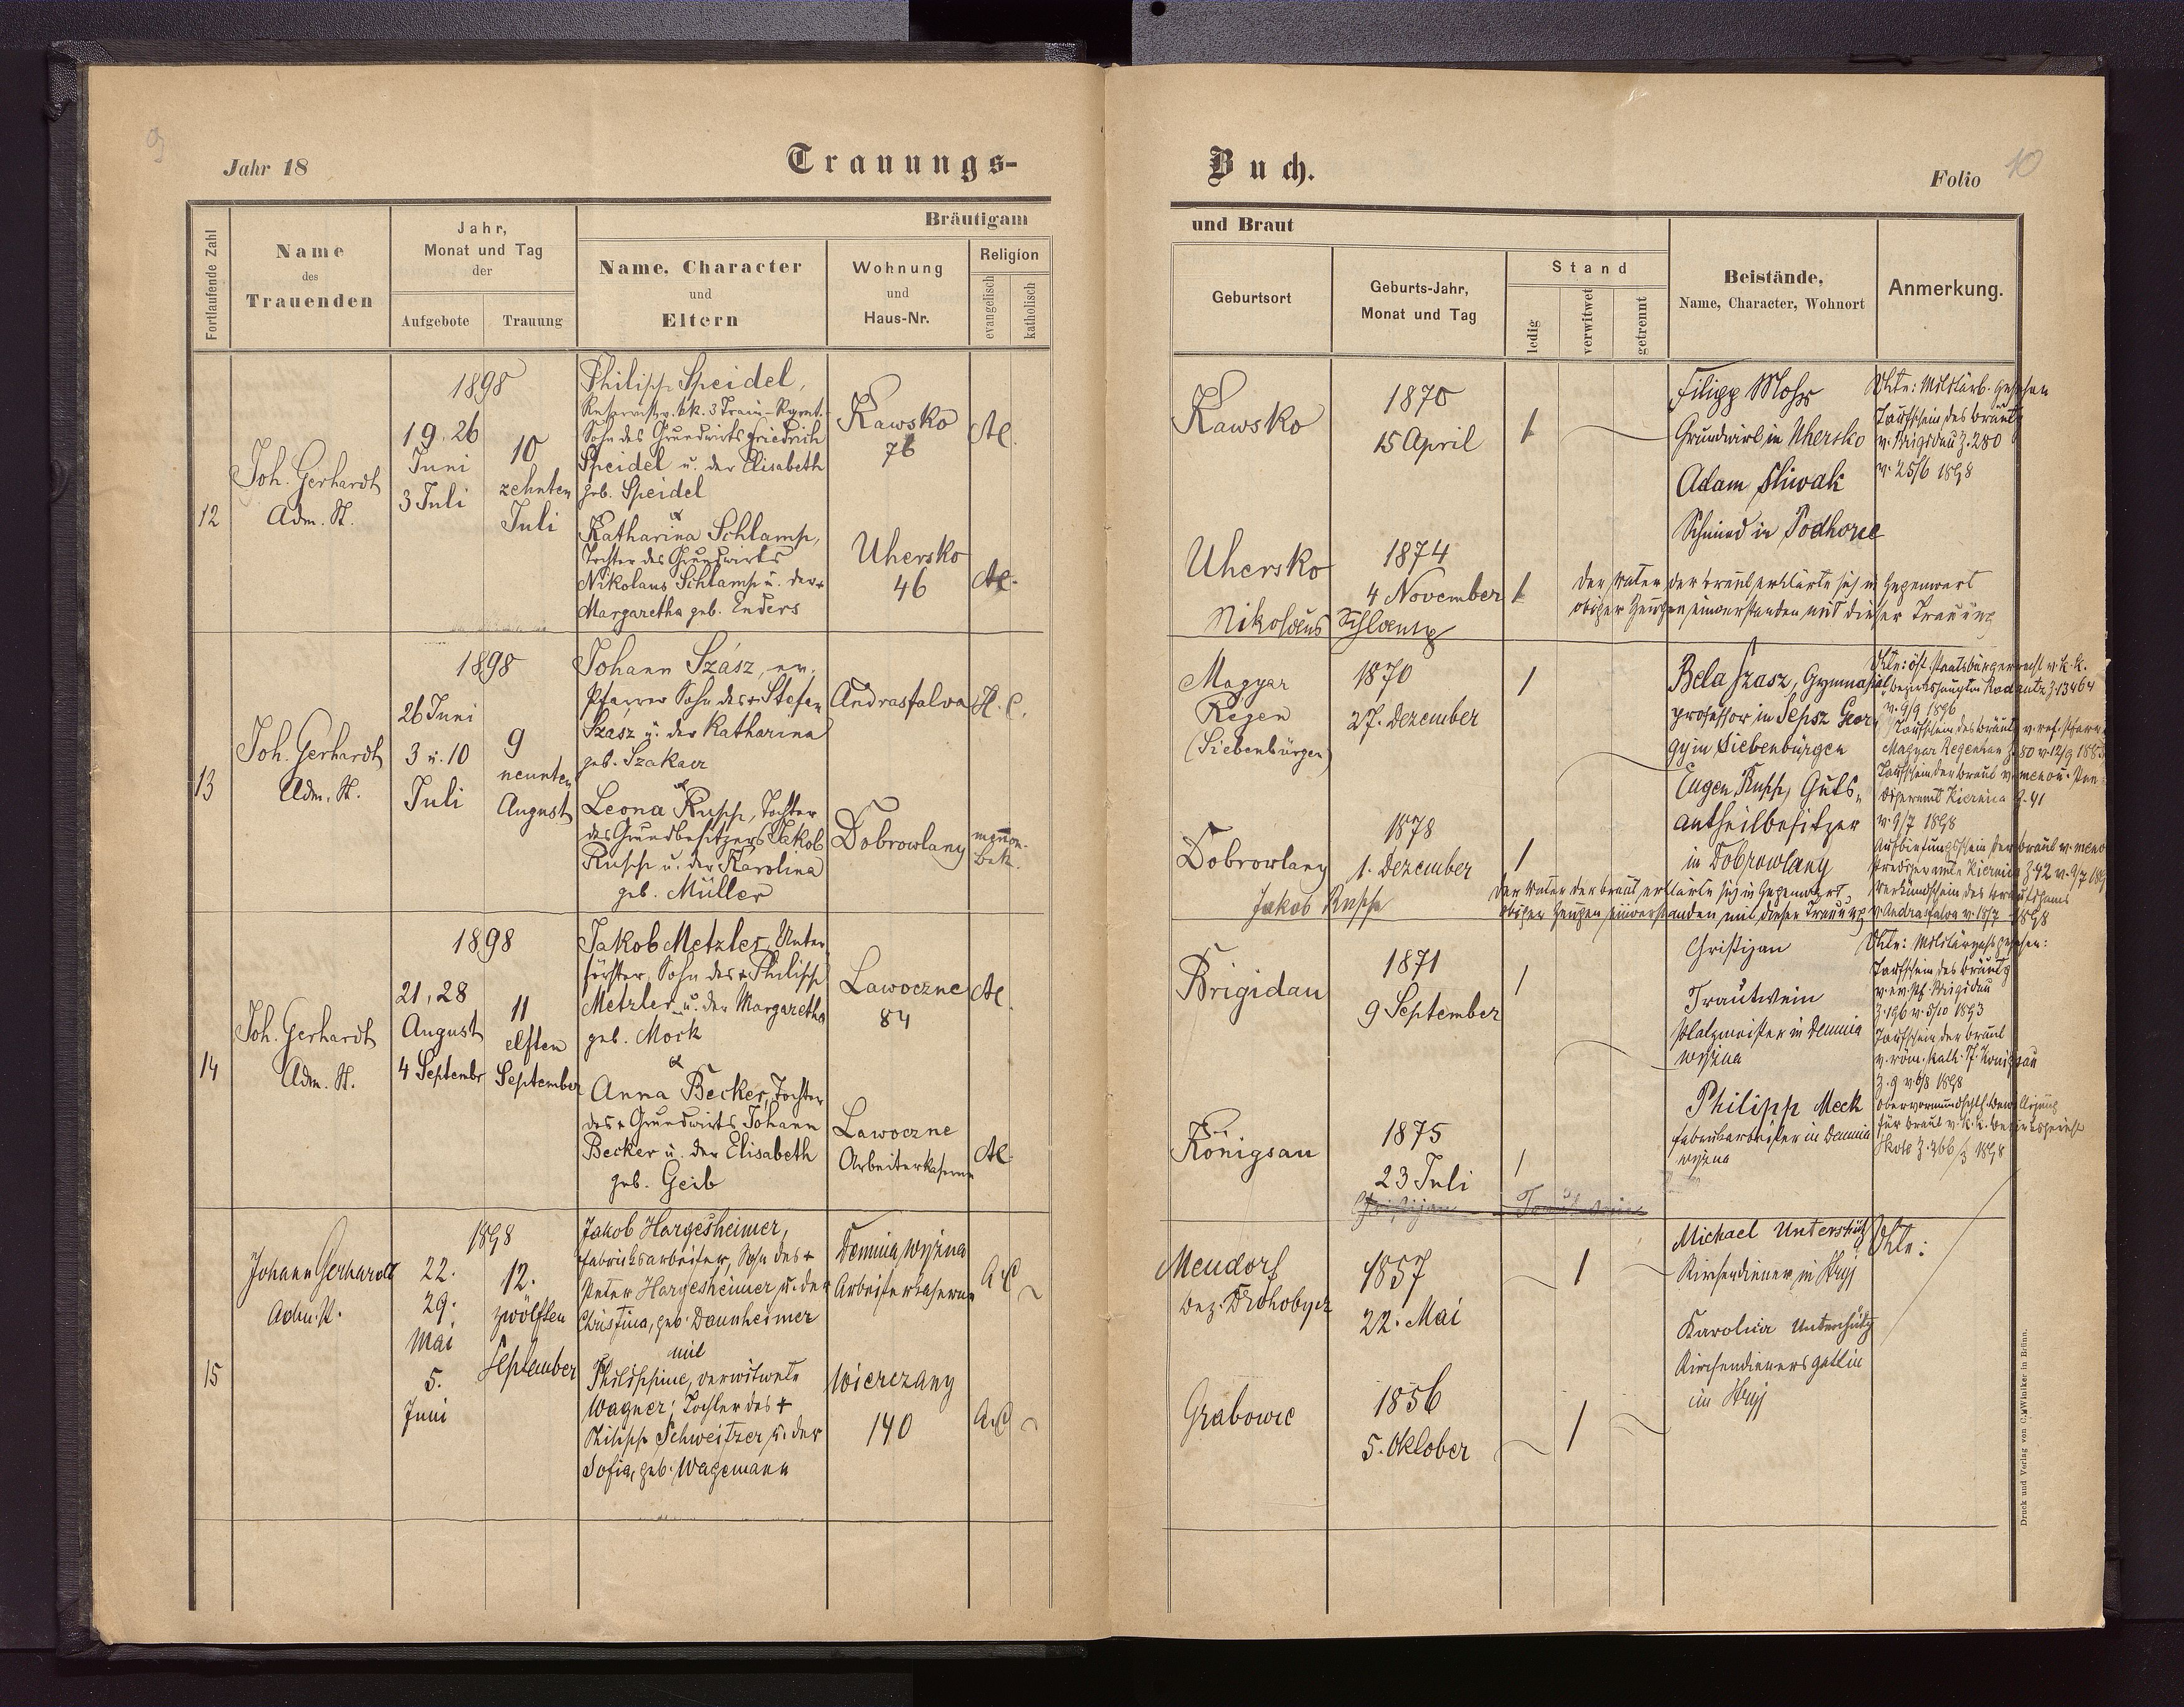 9
Jahr 18
Trauungs-
Fortlaufende Zahl
Name
des
Trauenden
Jahr,
Monat und Tag
der
Aufgebote
Trauung
Bräutigam
Name, Character
und
Eltern
Wohnung
und
Haus-Nr.
Religion
evangelisch
katholisch
12
Joh. Gerhardt
Adm. St.
1898
19. 26
Juni
3 Juli
10
zehnten
Juli
Philipp Speidel,
Reservist v. kk. 3 Train-Rgmt.
Sohn des Grundwirts Friedrich
Speidel u. der Elisabeth
geb. Speidel
&
Katharina Schlamp,
Tochter des Grundwirts
Nikolaus Schlamp u. der +
Margaretha geb. Enders
Kawsko
76
AC.
Uhersko
46
AC.
13
Joh. Gerhardt
Adm. St.
1898
26 Juni
3 u. 10
Juli
9
neunten
August
Johann Szász, ev.
Pfarrer Sohn des + Stefan
Szász u. der Katharina
geb. Szakacs
&
Leona Rupp, Tochter
des Grundbesitzers Jakob
Rupp u. der Karolina
geb. Müller
Andrasfalva
H. C.
Dobrowlany
mennon.
Bek.
14
Joh. Gerhardt
Adm. St.
1898
21, 28
August
4 Septembr
11
elften
September
Jakob Metzler, Unter
förster, Sohn des + Philipp
Metzler u. der Margaretha
geb. Mock
&
Anna Becker, Tochter
des + Grundwirts Johann
Becker u. der Elisabeth
geb. Geib
Lawoczne
84
AC.
Lawoczne
Arbeiterkaserne
AC.
15
Johann Gerhardt
Adm. St.
1898
22.
29.
Mai
5.
Juni
12.
zwölften
September
Jakob Hargesheimer,
Fabriksarbeiter, Sohn des +
Peter Hargesheimer u. der
Christina, geb. Dannheimer
mit
Philippine, verwitwete
Wagner; Tochter des +
Philipp Schweitzer u. der
Sofia, geb. Wagemann
Demnia wyżna
Arbeiterkaserne
AC
Wierczany
140
AC
Buch.
Folio
10
und Braut
Geburtsort
Geburts-Jahr,
Monat und Tag
Stand
ledig
verwitwet
getrennt
Beistände,
Name, Character, Wohnort
Anmerkung.
Kawsko
1870
15 April
1
Filipp Mohr
Grundwirt in Uhersko
Adam Sliwak
Schmied in Podhorce
Vhte: Militärb. gesehen
Taufschein des Bräutg
v. Brigidau Z. 280
v. 25/6 1898
Uhersko
1874
4 November
1
Der Vater der Braut erklärte sich in Gegenwart
obiger Zeugen einverstanden mit dieser Trauung
Nikolaus Schlamp
Magyar
Regen
(Siebenbürgen)
1870
27. Dezember
1
Bela Szasz, Gymnasial
professor in Sepsz Geor
gy in Siebenbürgen
Eugen Rupp, Guts-
antheilbesitzer
in Dobrowlany
Vhte: öst. Staatsbürgerrecht v. k. k.
Bezirkshauptm Radautz Z. 13464
v. 9/9 1896
Taufschein des Bräutg v. ref. Pfarre
Taufschein der Braut v. menon. Pre-
digeramt Kiernica Z. 41
v. 9/7 1898
Aufbietungsschein der Braut v. meno
Predigeramte Kiernica Z 42 v. 9/7 189
Verkündschein des Bräutigams
v. Andrasfalva v. 18/7 1898
Dobrowlany
1878
1. Dezember
1
Der Vater der Braut erklärte sich in Gegenwart
obiger Zeugen einverstanden mit dieser Trauung
Jakob Rupp
Brigidau
1871
9 September
1
Christian
Trautwein
Platzmeister in Demnia
wyżna
Philipp Meck
Fabriksarbeiter in Demnia
wyżna
Vhte: Militärpass gesehen:
Taufschein des Bräutg
v. ev. Pf. Brigidau
Z. 196 v. 5/10 1893
Taufschein der Braut
v. röm. kath. Pf. Königsau
Z. 9 v. 6/8 1898
Obervormundschftl. Bewilligung
für Braut v. k. k. Bezirksgericht
Skole Z. 366/3 1898
Königsau
1875
23 Juli
1
Christian Trautwein
Neudorf
Bez. Drohobycz
1857
22. Mai
1
Michael Unterschütz
Kirchendiener in Stryj
Karolina Unterschütz
Kirchendienersgattin
in Stryj
Vhte:
Grabowce
1856
5. Oktober
1
Druck und Verlag von C. Winiker in Brünn.